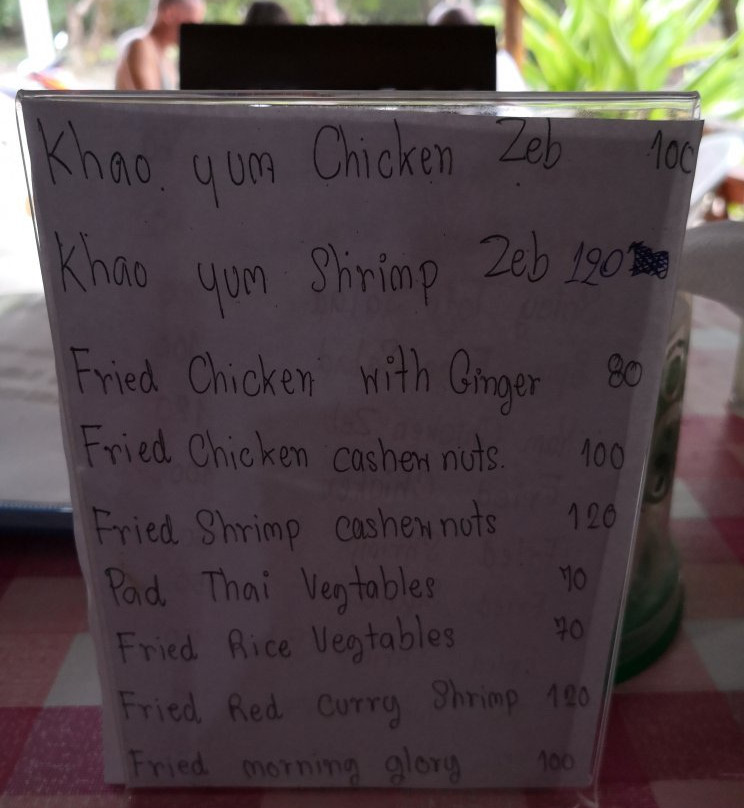 Khao yum Chicken Zeb 100
Khao yum Shrimp Zeb 120
Fried Chicken with Ginger 80
Fried Chicken cashew nuts. 100
Fried Shrimp cashew nuts 120
Pad Thai Vegtables 70
Fried Rice Vegtables 70
Fried Red Curry Shrimp 120
Fried morning glory 100